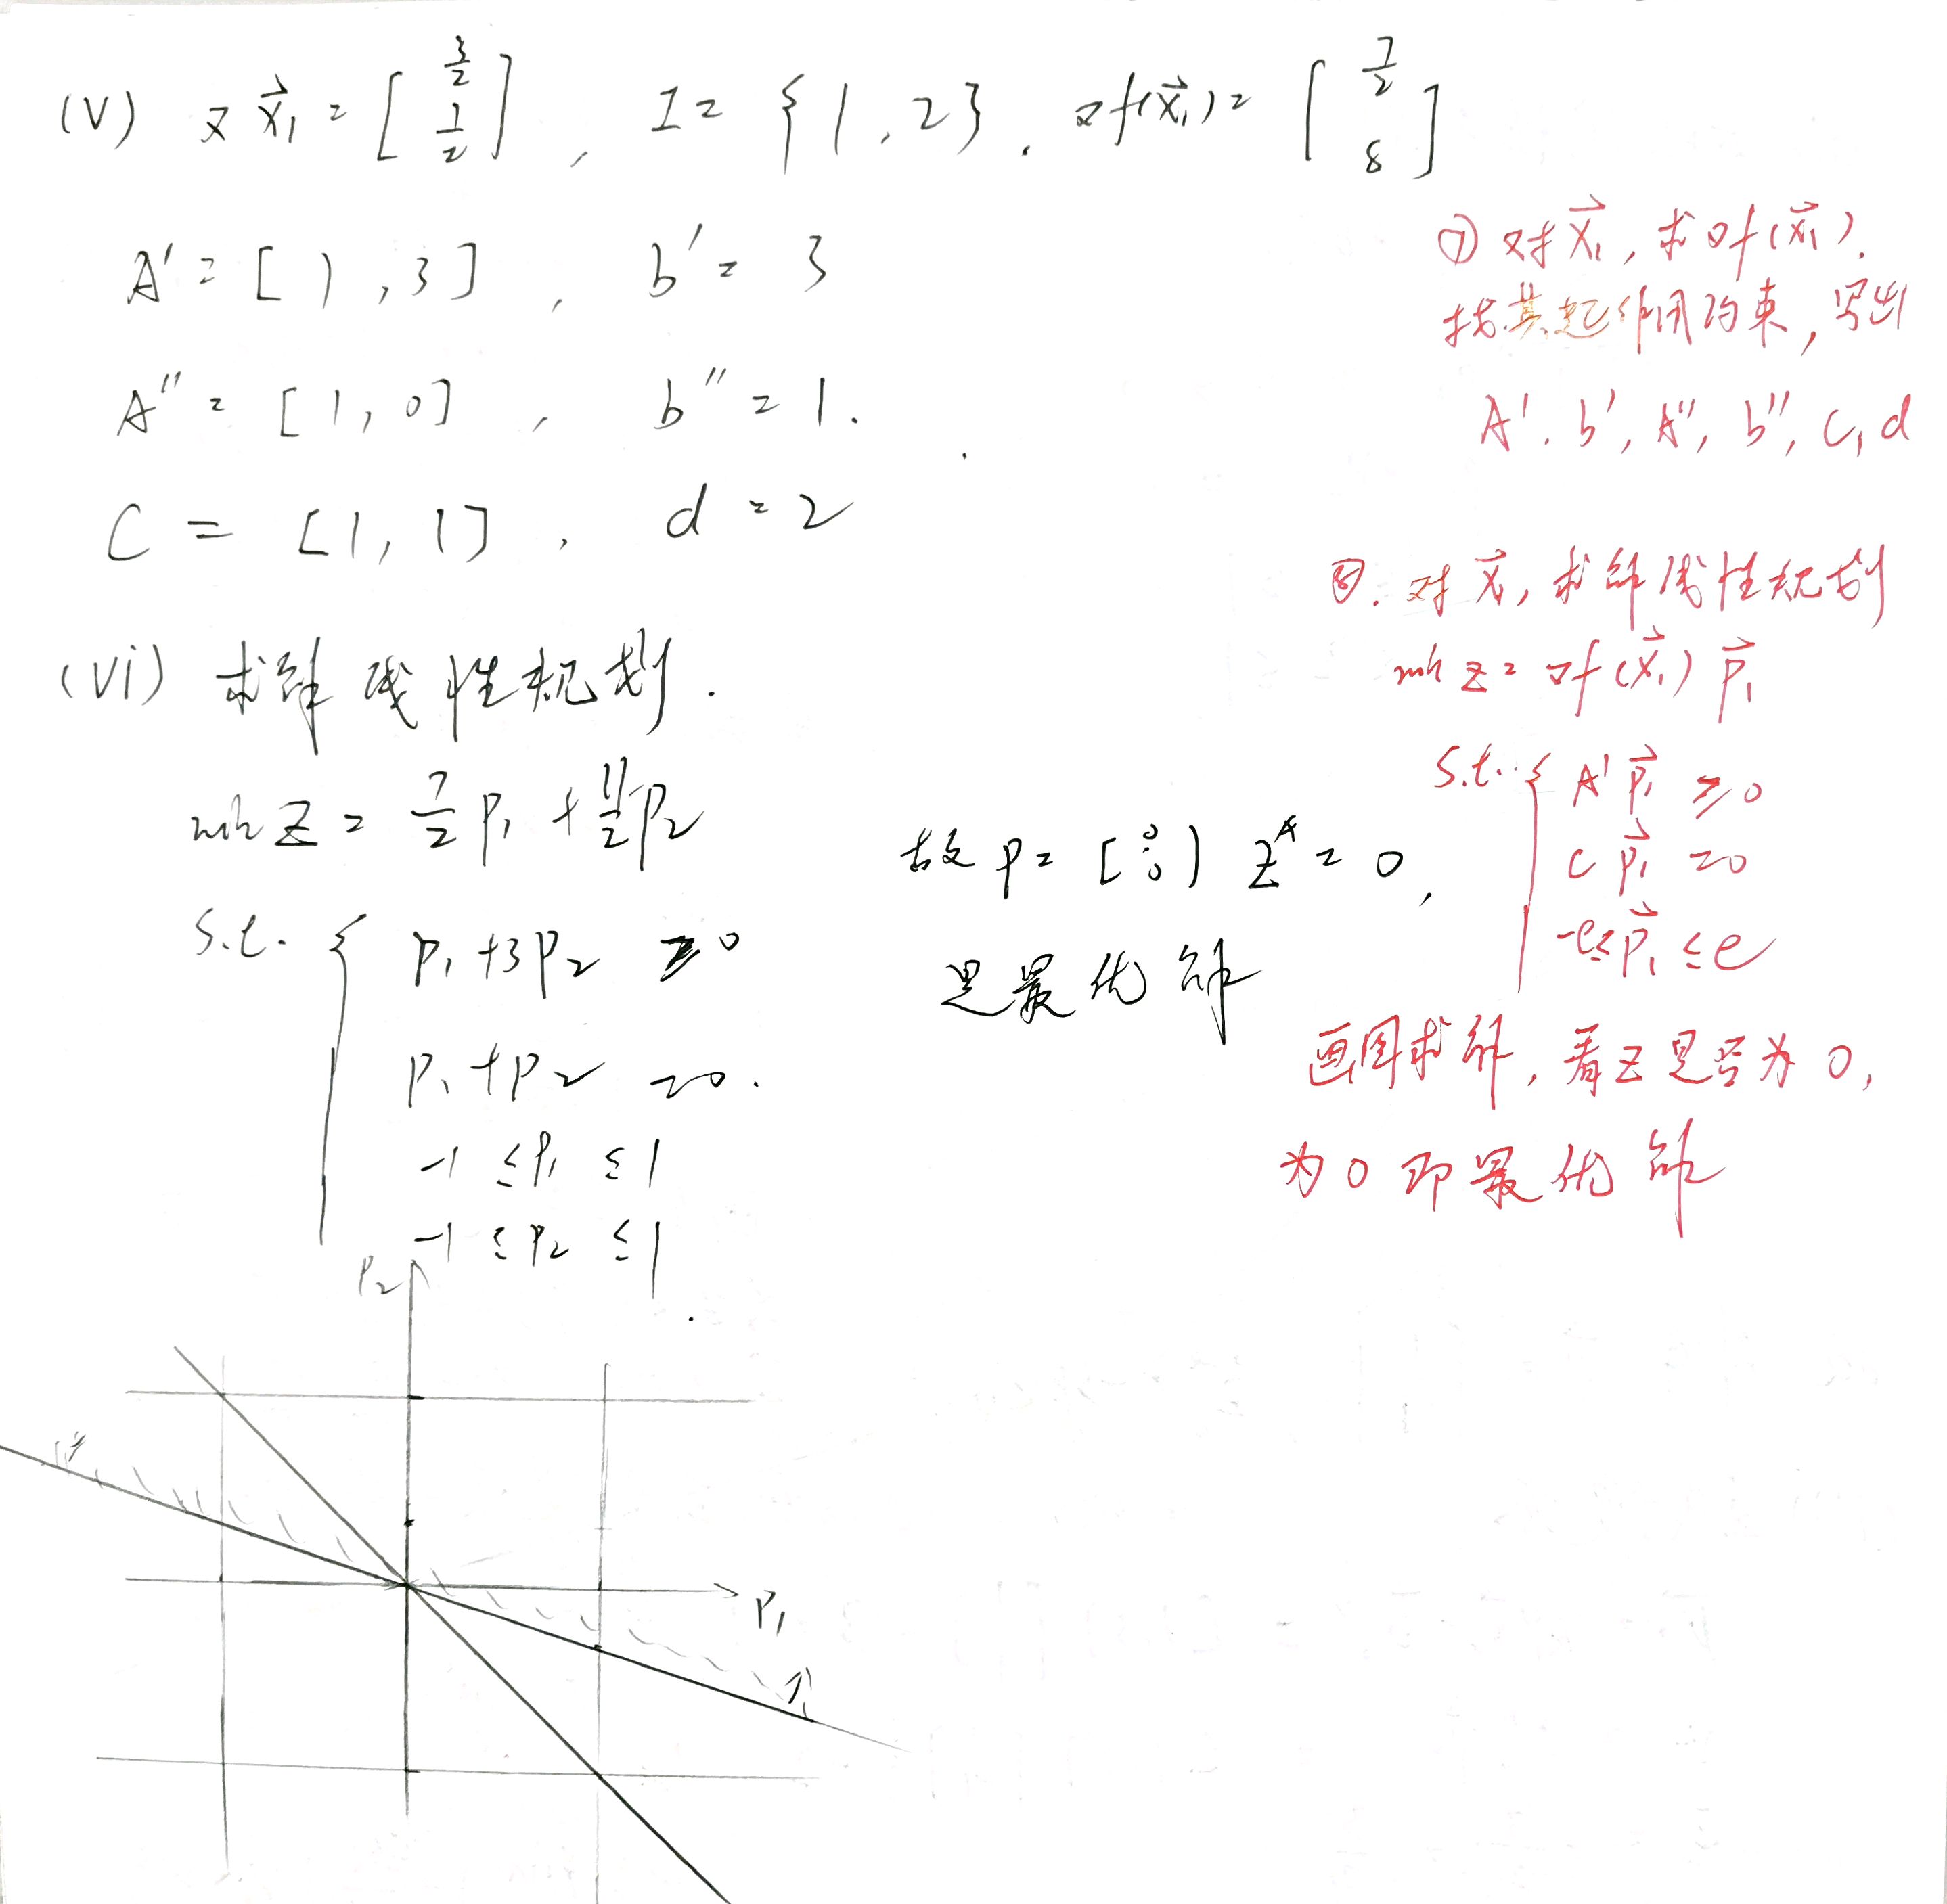 (V) 对 x⃗₁ = [3/2 1/2], I = {1, 2}, ∇f(x⃗₁) = [7/2 8]
A' = [1, 3], b' = 3
A'' = [1, 0], b'' = 1.
C = [1, 1], d = 2
(Vi) 求解线性规划.
min Z = 7/2 P₁ + 11/2 P₂
s.t. { P₁ + 3P₂ ≥ 0
P₁ + P₂ = 0.
-1 ≤ P₁ ≤ 1
-1 ≤ P₂ ≤ 1
故 P = [0 0] Z* = 0,
是最优解
P₂
P₁
⑦ 对 x⃗₁, 求 ∇f(x⃗₁).
找其起作用约束, 写出
A', b', A'', b'', C, d
⑧. 对 x⃗₁, 求解线性规划
min Z = ∇f(x⃗₁) P⃗₁
s.t. { A' P⃗₁ ≥ 0
C P⃗₁ = 0
-e ≤ P⃗₁ ≤ e
画图求解, 看 Z 是否为 0,
为 0 即最优解